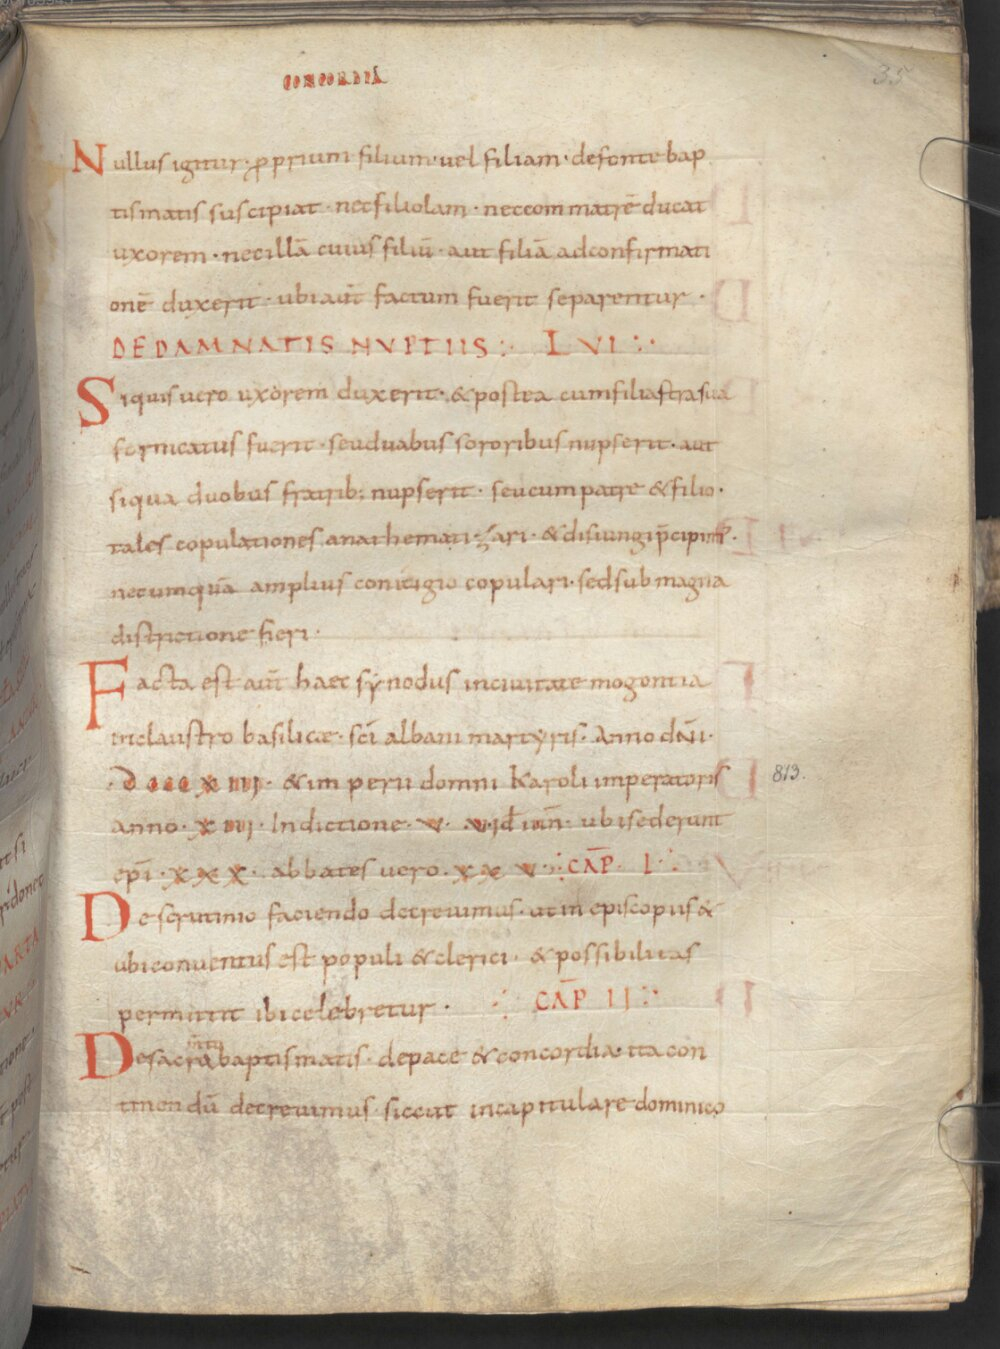 CONCORDIA
35
Nullus igitur · proprium filium · uel filiam · de fonte bap
tismatis suscipiat · nec filiolam · nec commatrē ducat
uxorem · nec illā cuius filiū · aut filiā ad confirmati
onē duxerit · ubi aūt factum fuerit separentur ·
DE DAMNATIS NVPTIIS · LVI ·
Siquis uero uxorem duxerit · & postea cum filiastra sua
fornicatus fuerit · seu duabus sororibus nupserit · aut
siqua duobus fratrib; nupserit · seu cum patre & filio ·
tales copulationes anathematizari · & disiungi p̄cipim̄ ·
nec umquā amplius coniugio copulari · sed sub magna
districtione fieri ·
Facta est aūt haec synodus in ciuitate mogontia
in claustro basilicae · sc̄i albani martyris · Anno dn̄i ·
· D CCC X IIII · & imperii domni Karoli imperatoris
813.
anno · X IIII · Indictione · V · VI id iun̄ · ubi sederunt
ep̄i · X X X · abbates uero · X X V · CAP̄ I ·
De scrutinio faciendo decreuimus · ut in episcopus &
ubi conuentus est populi & clerici · & possibilitas
permittit ibi celebretur · CAP̄ II ·
De sacra baptismatis · de pace & concordia · ita con
tinendū decreuimus · sicut in capitulare dominico